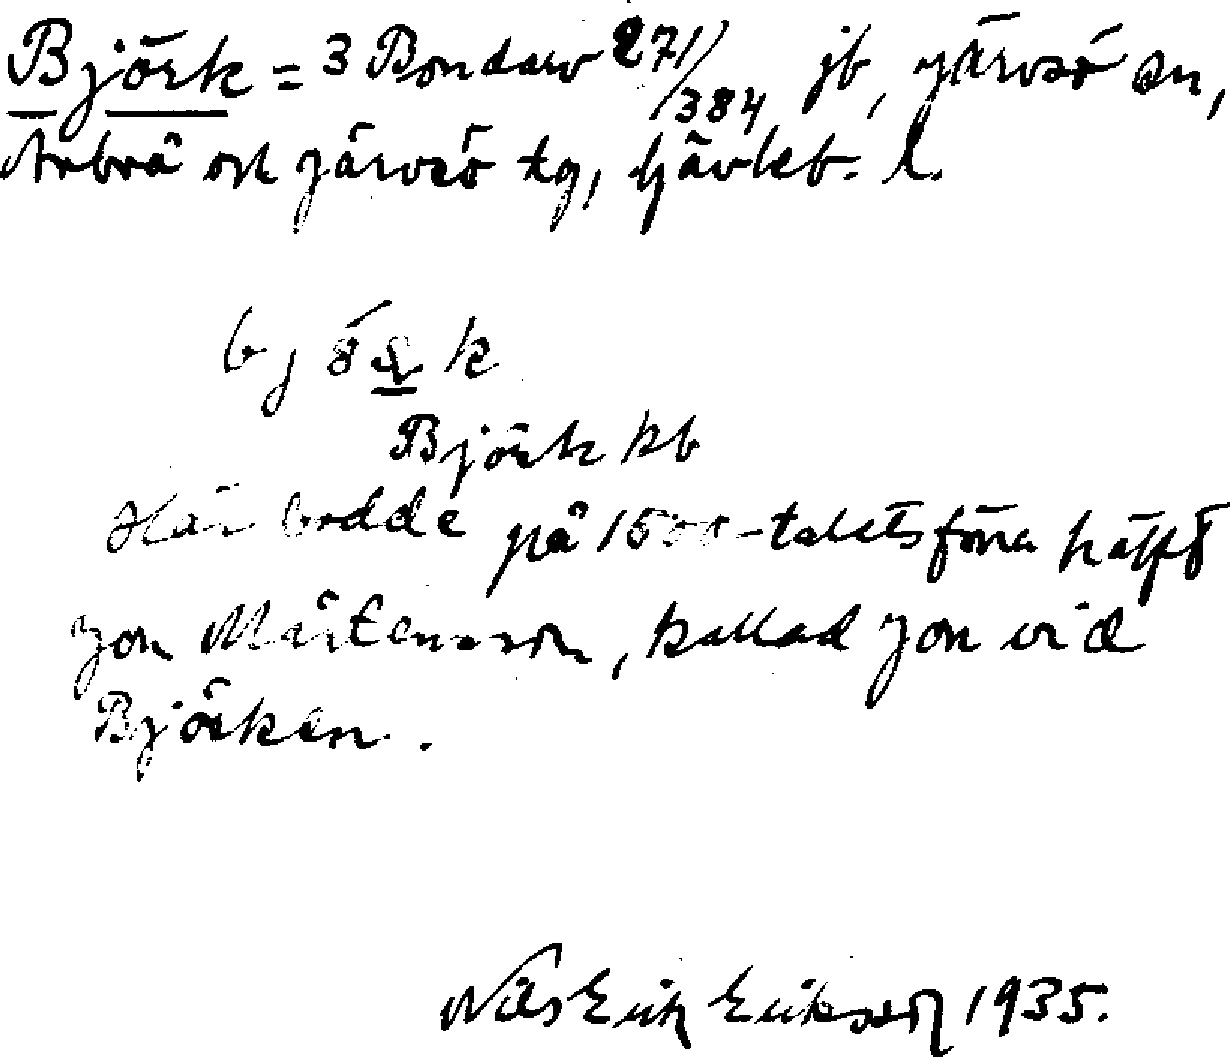 Björk = 3 Bondarv 271/384 jb, Järvsö sn,
Arbrå och Järvsö tg, Gävleb. l.
bjö k
Björk kb
Här bodde på 1500-talets förra hälft
Jon Mårtensson, kallad Jon vid
Björken.
Nils Erik Eriksson 1935.